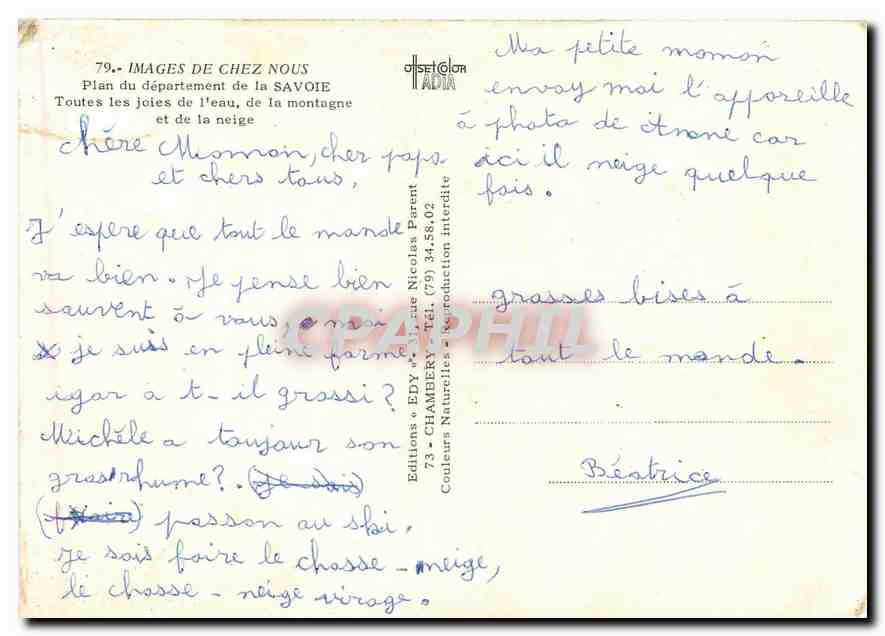 79.- IMAGES DE CHEZ NOUS
Plan du département de la SAVOIE
Toutes les joies de l'eau, de la montagne
et de la neige
OFFSETCOLOR
IADIA
chère Maman, cher papa
et chers tous,
J'espère que tout le monde
va bien. Je pense bien
souvent à vous, moi
je suis en pleine forme
igor à t-il grossi?
Michèle a toujour son
gros rhume?. (je sais)
passon au ski.
Je sais faire le chasse-neige,
le chasse-neige virage.
Editions « EDY » - 31, rue Nicolas Parent
73 - CHAMBERY - Tél. (79) 34.58.02
Couleurs Naturelles - Reproduction interdite
Ma petite maman
envoy moi l'appareille
à photo de Anne car
ici il neige quelque
fois.
grosses bises à
tout le monde.
Béatrice
CPAPHIL